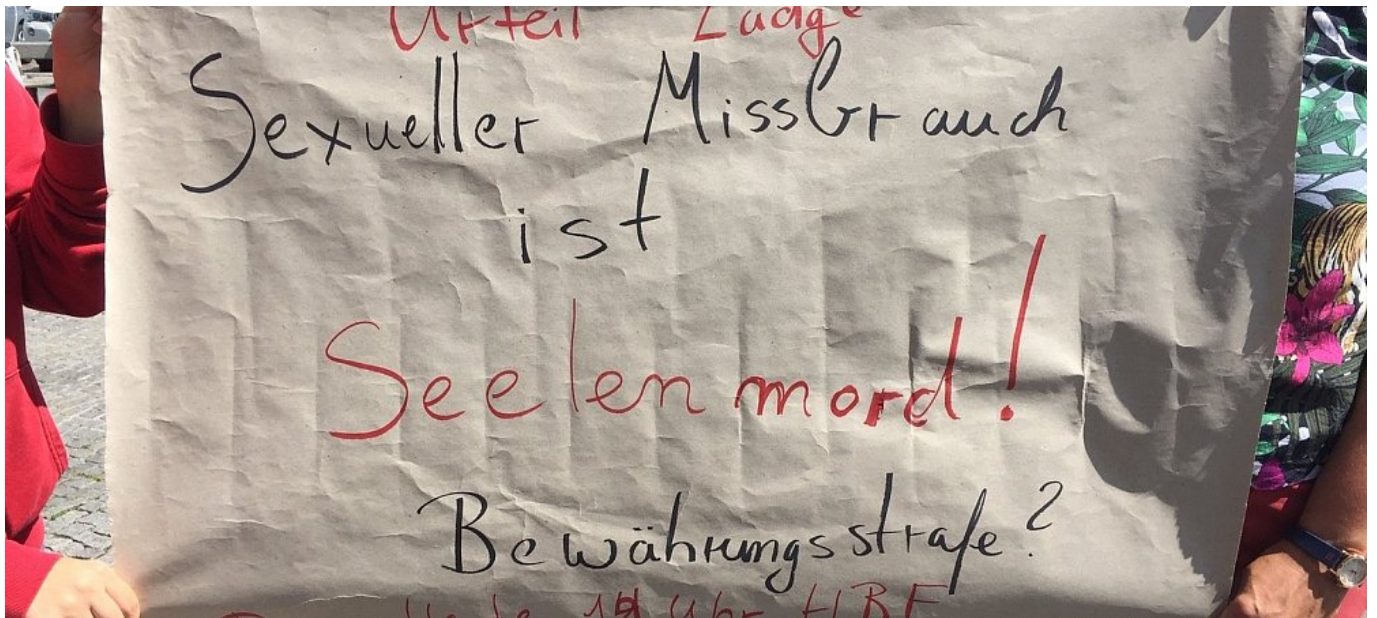 Urteil Lüdge
Sexueller Missbrauch
ist
Seelenmord!
Bewährungsstrafe?
Uhr HBF